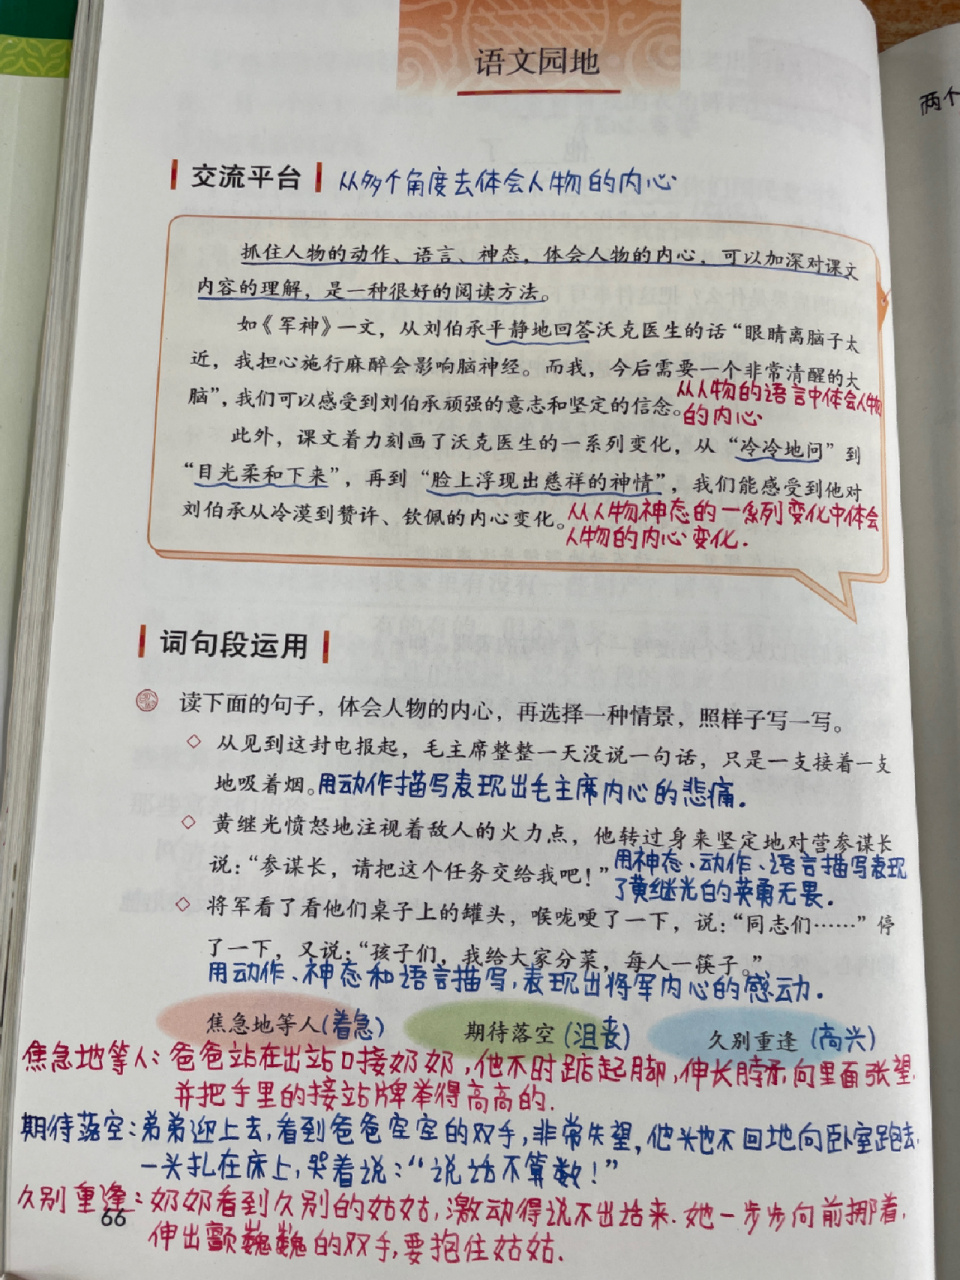 语文园地
两个
交流平台 从多个角度去体会人物的内心
抓住人物的动作、语言、神态，体会人物的内心，可以加深对课文
内容的理解，是一种很好的阅读方法。
如《军神》一文，从刘伯承平静地回答沃克医生的话“眼睛离脑子太
近，我担心施行麻醉会影响脑神经。而我，今后需要一个非常清醒的大
脑”，我们可以感受到刘伯承顽强的意志和坚定的信念。
从人物的语言中体会人物
的内心
此外，课文着力刻画了沃克医生的一系列变化，从“冷冷地问”到
“目光柔和下来”，再到“脸上浮现出慈祥的神情”，我们能感受到他对
刘伯承从冷漠到赞许、钦佩的内心变化。
从人物神态的一系列变化中体会
人物的内心变化.
词句段运用
读下面的句子，体会人物的内心，再选择一种情景，照样子写一写。
◇ 从见到这封电报起，毛主席整整一天没说一句话，只是一支接着一支
地吸着烟。用动作描写表现出毛主席内心的悲痛.
◇ 黄继光愤怒地注视着敌人的火力点，他转过身来坚定地对营参谋长
说：“参谋长，请把这个任务交给我吧！”
用神态、动作、语言描写表现
了黄继光的英勇无畏.
◇ 将军看了看他们桌子上的罐头，喉咙哽了一下，说：“同志们……”停
了一下，又说：“孩子们，我给大家分菜，每人一筷子。”
用动作、神态和语言描写,表现出将军内心的感动.
焦急地等人(着急) 期待落空(沮丧) 久别重逢(高兴)
焦急地等人：爸爸站在出站口接奶奶,他不时踮起脚,伸长脖子,向里面张望,
并把手里的接站牌举得高高的.
期待落空:弟弟迎上去,看到爸爸空空的双手,非常失望,他头也不回地向卧室跑去,
一头扎在床上,哭着说:“说话不算数!”
久别重逢:奶奶看到久别的姑姑,激动得说不出话来.她一步步向前挪着,
伸出颤巍巍的双手,要抱住姑姑.
66